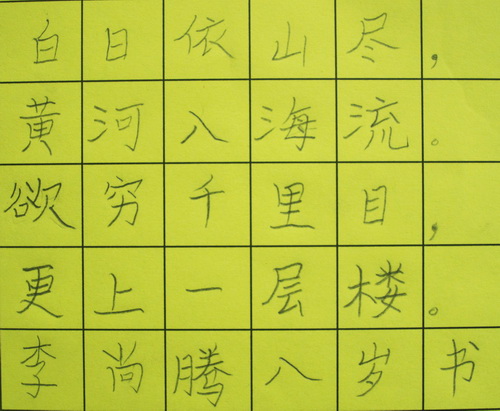 白日依山尽，
黄河入海流。
欲穷千里目，
更上一层楼。
李尚腾八岁书